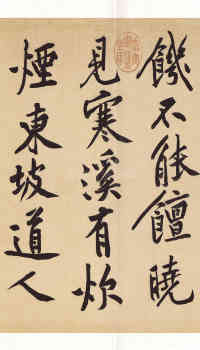 饑不能饘曉
見寒溪有炊
煙東坡道人